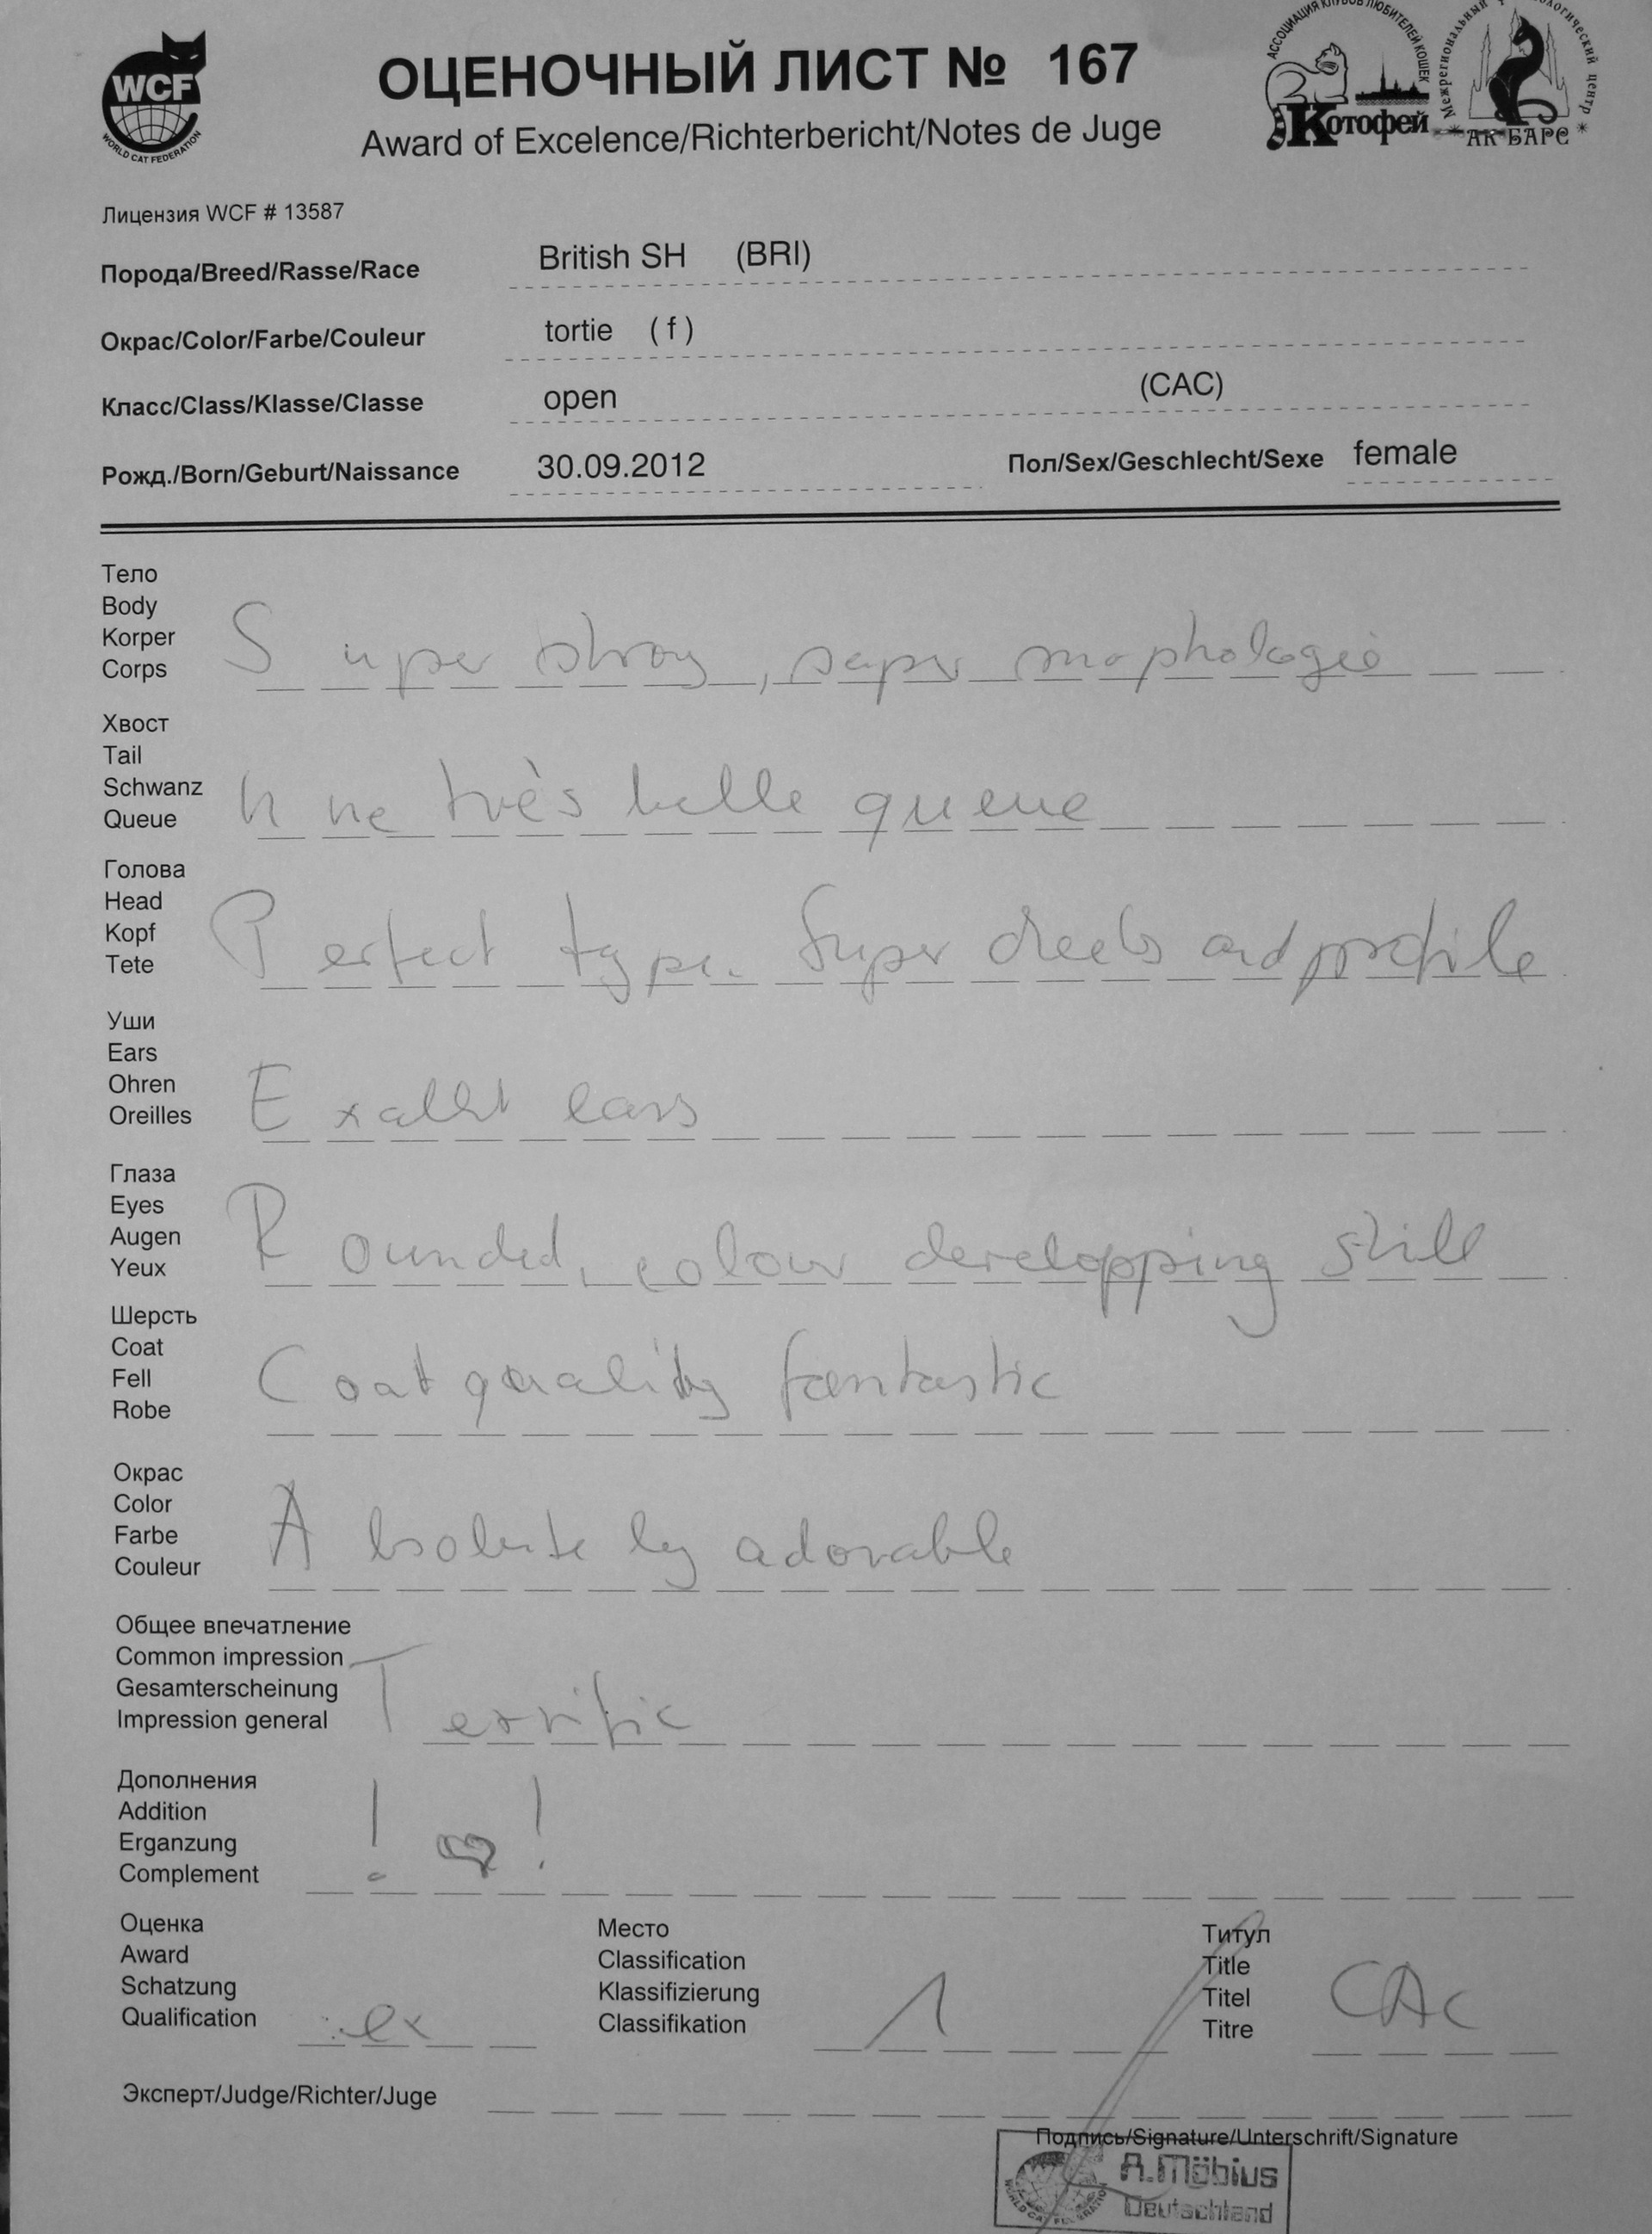 WCF
WORLD CAT FEDERATION
ОЦЕНОЧНЫЙ ЛИСТ № 167
Award of Excelence/Richterbericht/Notes de Juge
АССОЦИАЦИЯ КЛУБОВ ЛЮБИТЕЛЕЙ КОШЕК
Котофей
Межрегиональный центр
АК БАРС
Лицензия WCF # 13587
Порода/Breed/Rasse/Race British SH (BRI)
Окрас/Color/Farbe/Couleur tortie (f)
Класс/Class/Klasse/Classe open (CAC)
Рожд./Born/Geburt/Naissance 30.09.2012 Пол/Sex/Geschlecht/Sexe female
Тело
Body
Korper
Corps
Super strong, super mophologie
Хвост
Tail
Schwanz
Queue
Une très belle queue
Голова
Head
Kopf
Tete
Perfect type. Super cheeks and profile
Уши
Ears
Ohren
Oreilles
ears
Глаза
Eyes
Augen
Yeux
Rounded, colour developping still
Шерсть
Coat
Fell
Robe
Coat quality fantastic
Окрас
Color
Farbe
Couleur
Absolutely adorable
Общее впечатление
Common impression
Gesamterscheinung
Impression general
Terrific
Дополнения
Addition
Erganzung
Complement
! !
Оценка
Award
Schatzung
Qualification
ex
Место
Classification
Klassifizierung
Classifikation
1
Титул
Title
Titel
Titre
CAC
Эксперт/Judge/Richter/Juge
Подпись/Signature/Unterschrift/Signature
A.Möbius
Deutschland
WORLD CAT FEDERATION